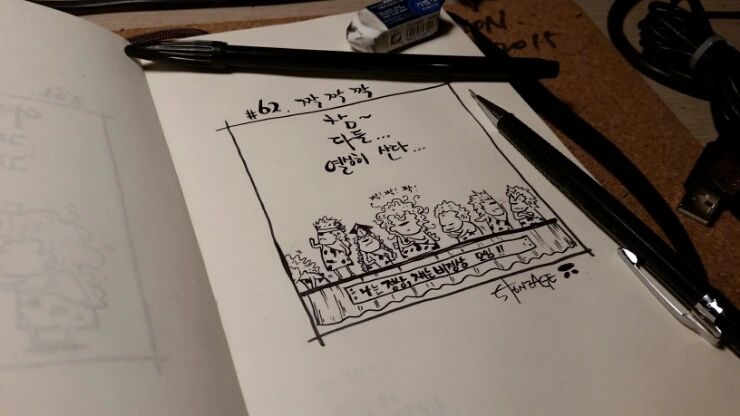 #62. 짝 짝 짝
참~
다들...
열심히 산다...
짝! 짝! 짝!
나는 정상, 재는 비정상